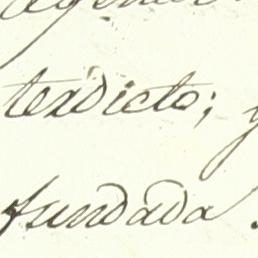 terdicto; y
fundada.